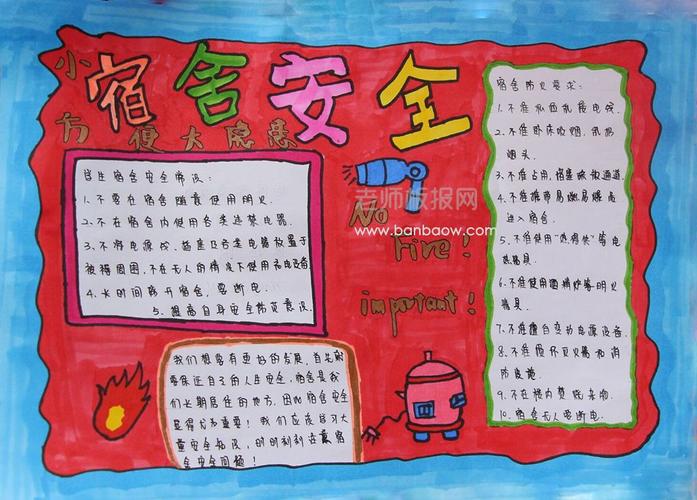 宿舍安全
小方便大隐患
学生宿舍安全常识：
1.不要在宿舍随意使用明火.
2.不在宿舍内使用各类违禁电器.
3.不将电源线、插座及各类电器放置于
被褥周围.不在无人的情况下使用充电设备
4.长时间离开宿舍，要断电.
5.提高自身安全防范意识.
我们想要有更好的发展，首先就
要保证自己的人生安全，宿舍是我
们长期居住的地方，因此宿舍安全
显得尤为重要！我们应该学习大
量安全知识，时时刻刻注意宿
舍安全问题！
老师板报网
www.banbaow.com
No
Fire!
important!
宿舍防火要求：
1.不准私自乱接电线.
2.不准卧床吸烟，乱扔
烟头.
3.不准占用、堵塞疏散通道.
4.不准携带易燃易爆品
进入宿舍.
5.不准使用“热得快”等电
热器具.
6.不准使用酒精炉等明火
器具.
7.不准擅自变动电源设备.
8.不准损坏灭火器和消
防设施.
9.不在楼内焚烧杂物.
10.宿舍无人要断电.